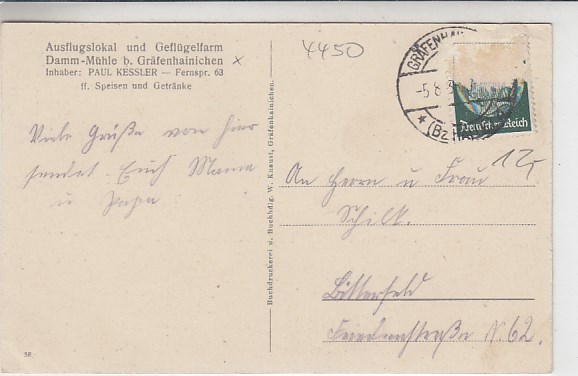 Ausflugslokal und Geflügelfarm
Damm-Mühle b. Gräfenhainichen x
Inhaber: PAUL KESSLER — Fernspr. 63
ff. Speisen und Getränke
4450
GRÄFENHAI
-5.8.3
* (Bz. HA
Deutsches Reich
12,-
Viele Grüße von hier
sendet Euch Mama
u Papa
Buchdruckerei u. Buchhdlg. W. Knaust, Gräfenhainichen.
An Herrn u Frau
Schilk.
Bitterfeld
Friedenstraße N. 62.
38